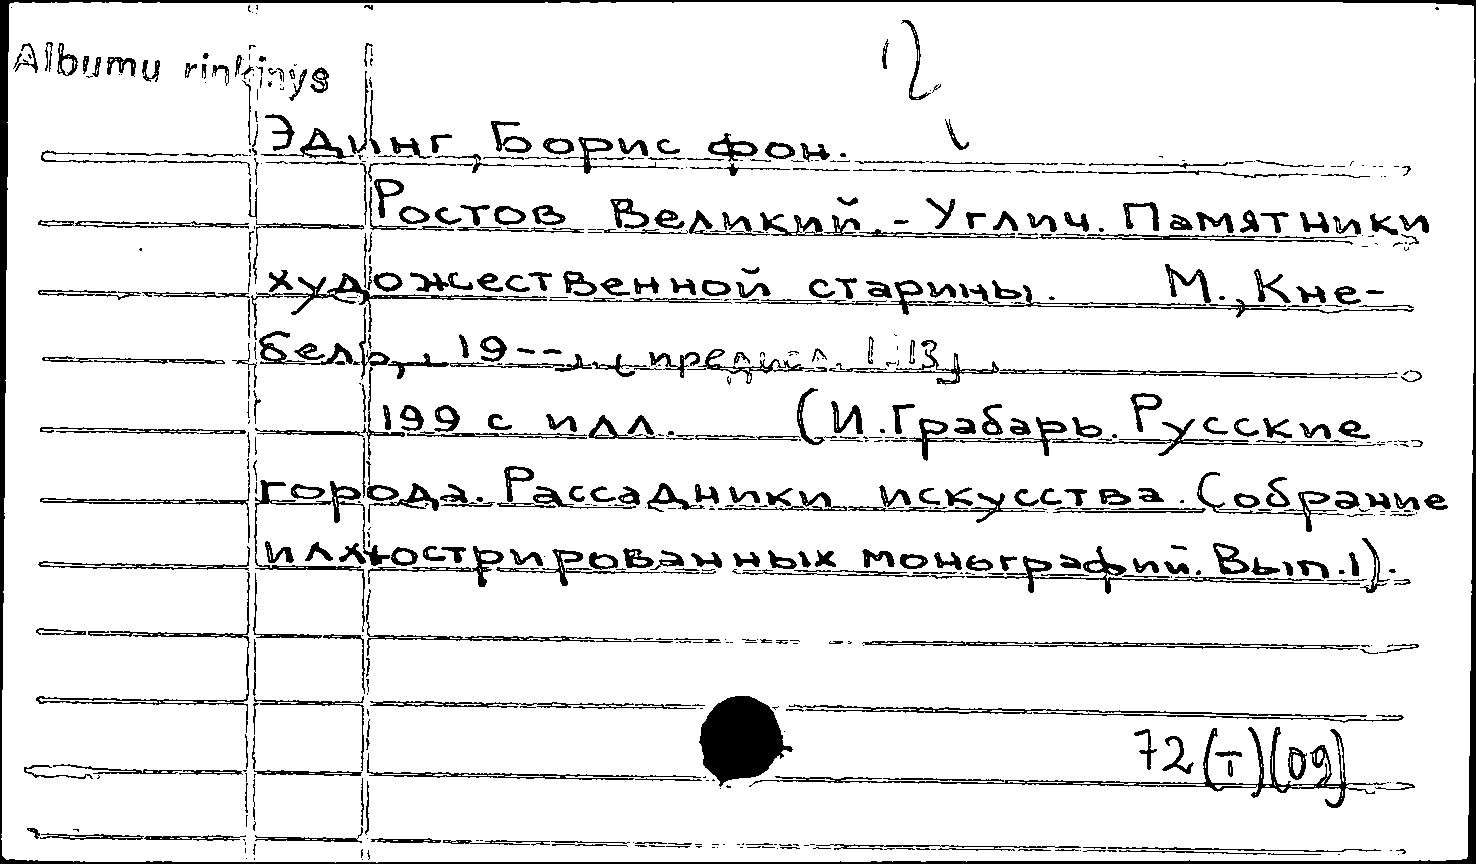 Albumu rinkinys
12
Эдинг, Борис фон.
Ростов Великий. - Углич. Памятники
художественной старины. М., Кне-
бель, 19--. [предисл. 1913].
199 с илл. (И. Грабарь. Русские
города. Рассадники искусства. Собрание
иллюстрированных монографий. Вып. 1).
72(Т)(09)